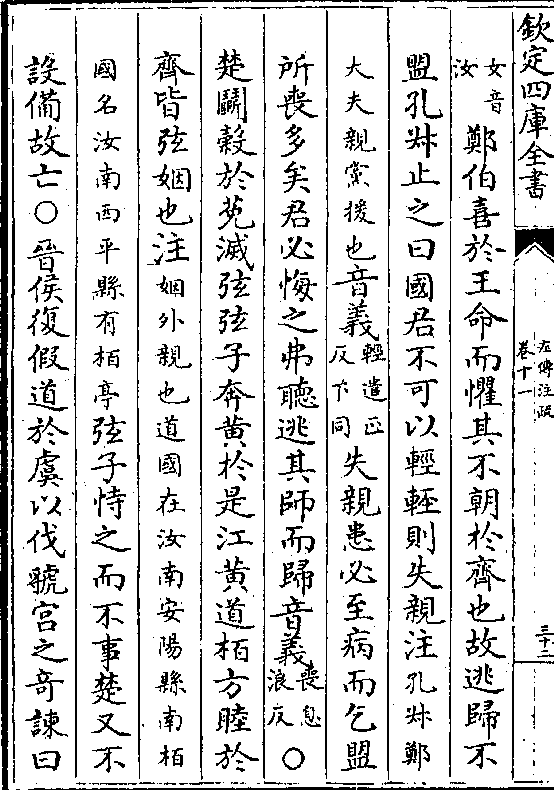 欽定四庫全書
左傳注疏
卷十一
三十二
女音
汝
鄭伯喜於王命而懼其不朝於齊也故逃歸不
盟孔叔止之曰國君不可以輕輕則失親注孔叔鄭
大夫親黨援也音義輕遣政
反下同
失親患必至病而乞盟
所喪多矣君必悔之弗聽逃其師而歸音義喪息
浪反
○
楚鬬穀於菟滅弦弦子奔黄於是江黄道栢方睦於
齊皆弦姻也注姻外親也道國在汝南安陽縣南栢
國名汝南西平縣有栢亭弦子恃之而不事楚又不
設備故亡○晉侯復假道於虞以伐虢宫之奇諫曰